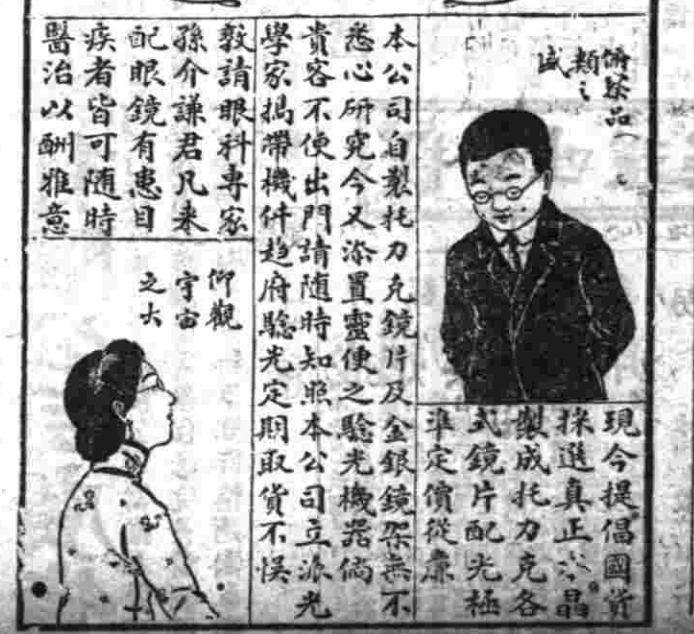 俯察品
類之
盛
現今提倡國貨
採選真正水晶
製成托力克各
式鏡片配光極
準定價從廉
本公司自製托力克鏡片及金銀鏡架無不
悉心研究今又添置靈便之驗光機器倘
貴客不便出門請随時知照本公司立派光
學家携帶機件趋府驗光定期取貨不悞
敦請眼科專家
孫介謙君凡来
配眼鏡有患目
疾者皆可随時
醫治以酬雅意
仰觀
宇宙
之大